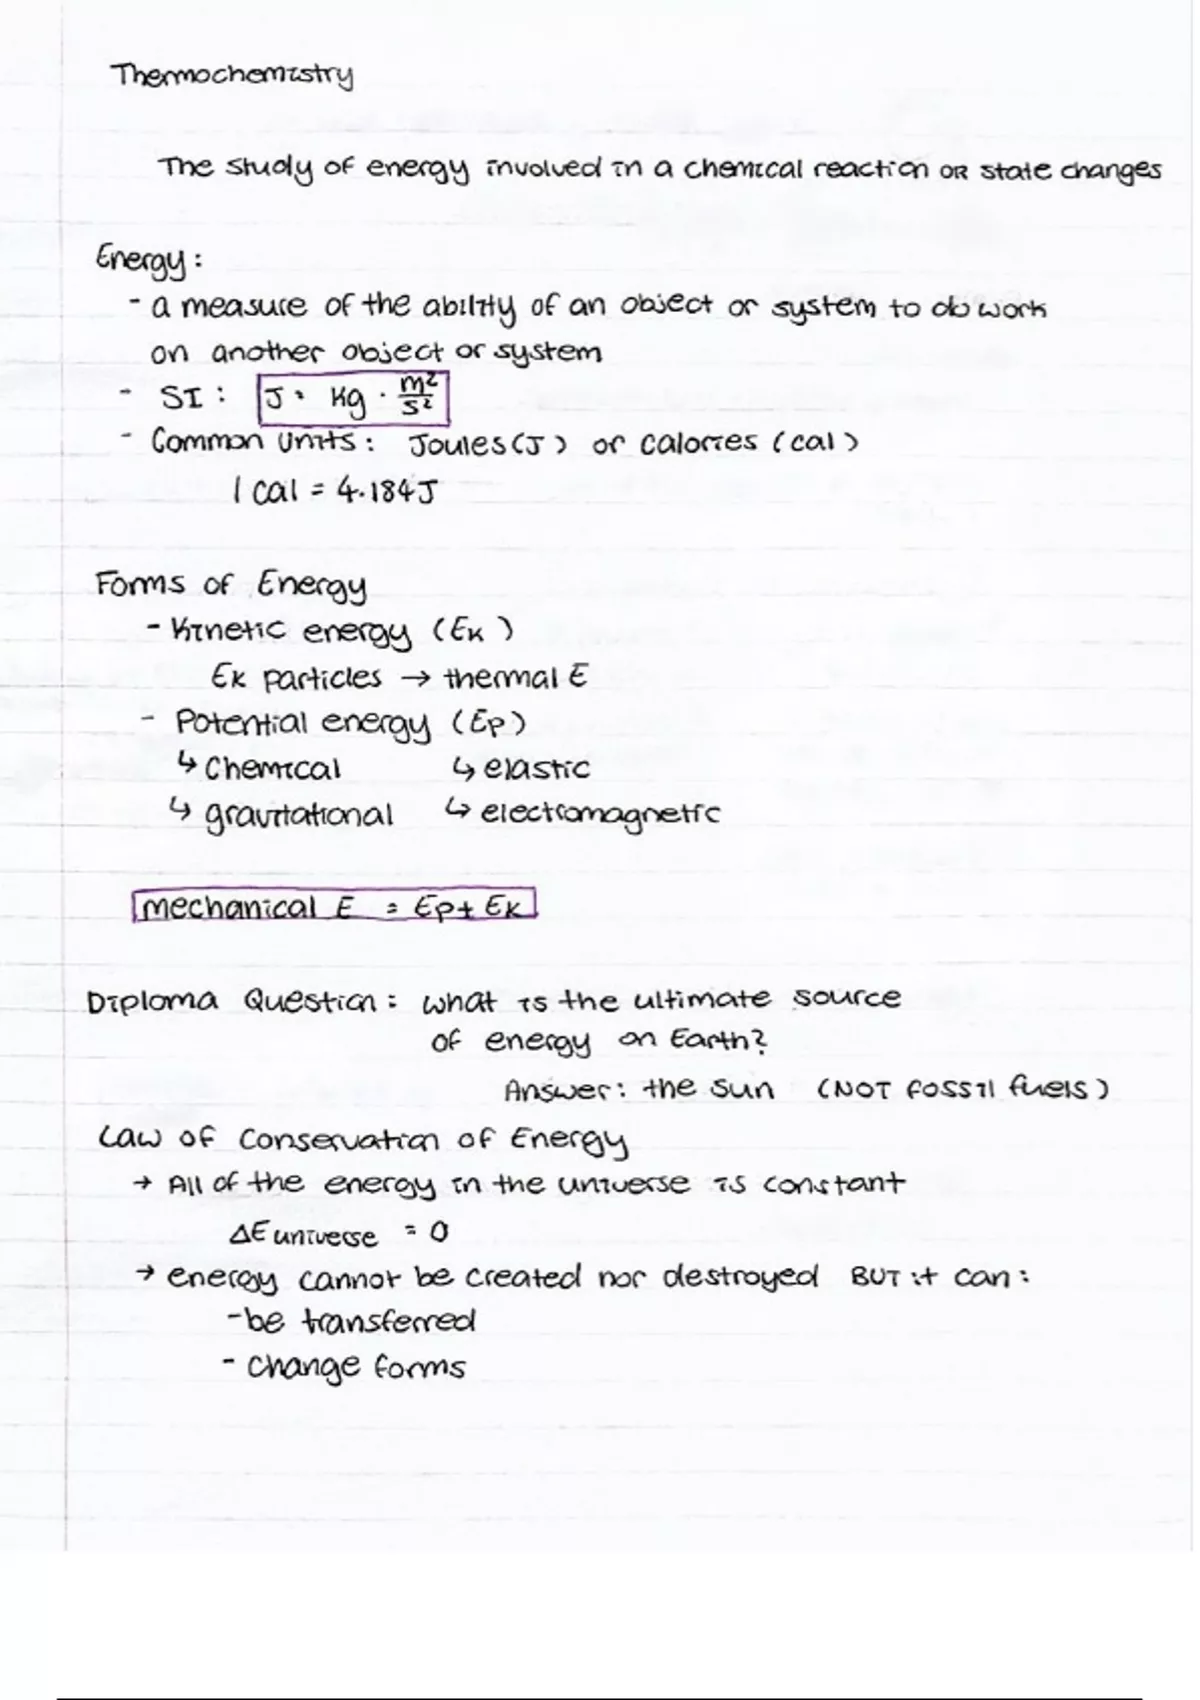 Thermochemistry
The study of energy involved in a chemical reaction OR state changes
Energy:
- a measure of the ability of an object or system to do work
on another object or system
- SI: J = Kg · m²/s²
- Common units: Joules (J) or calories (cal)
1 cal = 4.184J
Forms of Energy
- Kinetic energy (Ek)
Ek particles → thermal E
- Potential energy (Ep)
↳ Chemical ↳ elastic
↳ gravitational ↳ electromagnetic
mechanical E = Ep + Ek
Diploma Question: what is the ultimate source
of energy on Earth?
Answer: the sun (NOT fossil fuels)
Law of Conservation of Energy
→ All of the energy in the universe is constant
ΔE universe = 0
→ energy cannot be created nor destroyed BUT it can:
- be transferred
- change forms